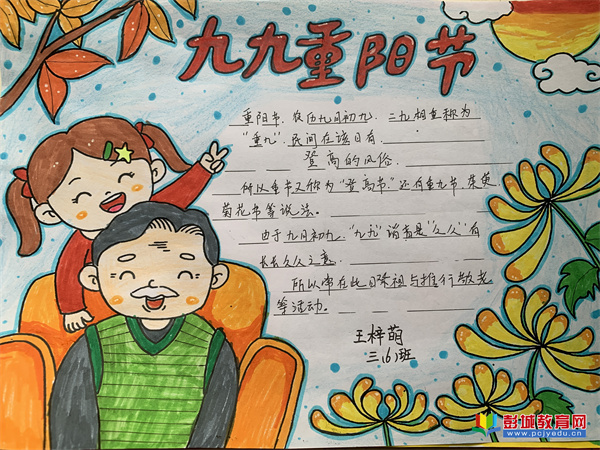 九九重阳节
重阳节,农历九月初九,二九相重称为
“重九”,民间在该日有
登高的风俗,
所以重阳节又称为“登高节”。还有重九节、茱萸、
菊花节等说法。
由于九月初九,“九九”谐音是“久久”有
长长久久之意,
所以常在此日祭祖与推行敬老
等活动。
王梓萌
三(6)班
彭城教育网
www.pcjyedu.cn